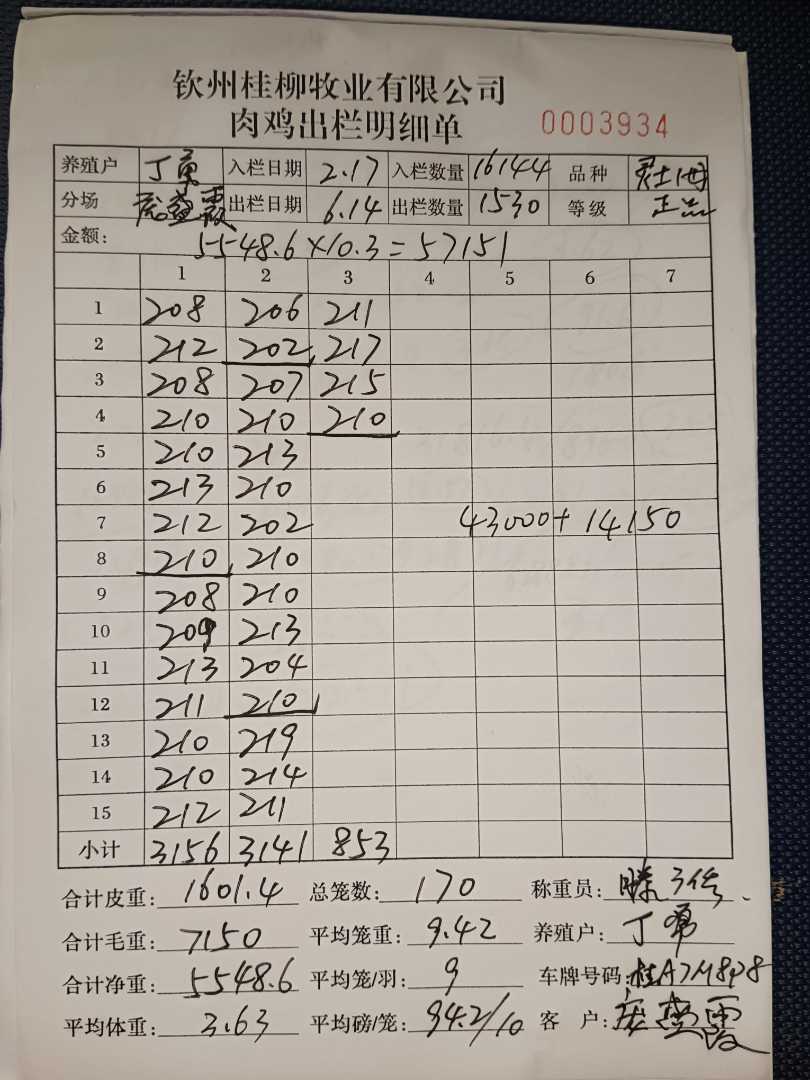 钦州桂柳牧业有限公司
肉鸡出栏明细单 0003934
养殖户 丁 入栏日期 2.17 入栏数量 16144 品种
分场 霞 出栏日期 6.14 出栏数量 1530 等级 正品
金额: 5548.6×10.3=57151
1 2 3 4 5 6 7
1 208 206 211
2 212 202 217
3 208 207 215
4 210 210 210
5 210 213
6 213 210
7 212 202 43000+14150
8 210 210
9 208 210
10 209 213
11 213 204
12 211 210
13 210 219
14 210 214
15 212 211
小计 3156 3141 853
合计皮重: 1601.4 总笼数: 170 称重员:
合计毛重: 7150 平均笼重: 9.42 养殖户: 丁
合计净重: 5548.6 平均笼/羽: 9 车牌号码: 桂A7M898
平均体重: 3.63 平均磅/笼: 94.2/10 客 户: 霞